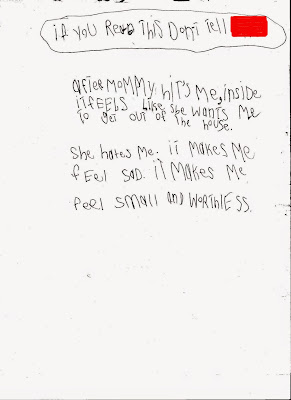 if you Read This Don't Tell
after Mommy hit's Me, inside
it fEELs Like she wants Me
To get out of The house.
She hates Me. iT MAKEs ME
fEEL SAD. iT MAKEs ME
FEEL SMALL and WORTHLESS.